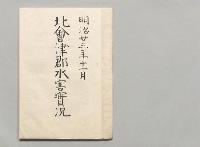 明治廿三年十二月
北會津郡水害實況